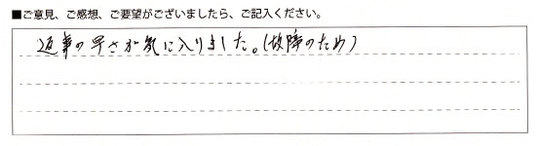 ■ご意見、ご感想、ご要望がございましたら、ご記入ください。
返事の早さが気に入りました。(故障のため)